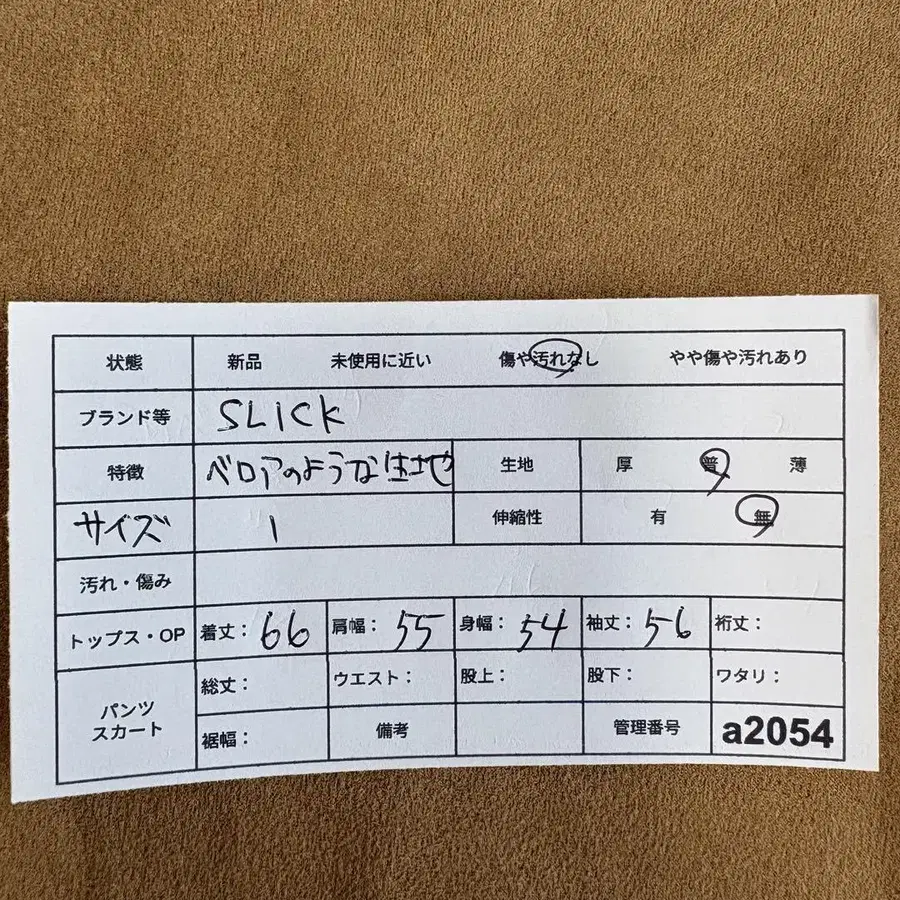 状態 新品 未使用に近い 傷や汚れなし やや傷や汚れあり
ブランド等 SLICK
特徴 ベロアのような生地 生地 厚 普 薄
サイズ 1 伸縮性 有 無
汚れ・傷み
トップス・OP 着丈: 66 肩幅: 55 身幅: 54 袖丈: 56 裄丈:
パンツ スカート 総丈: ウエスト: 股上: 股下: ワタリ:
裾幅: 備考 管理番号 a2054